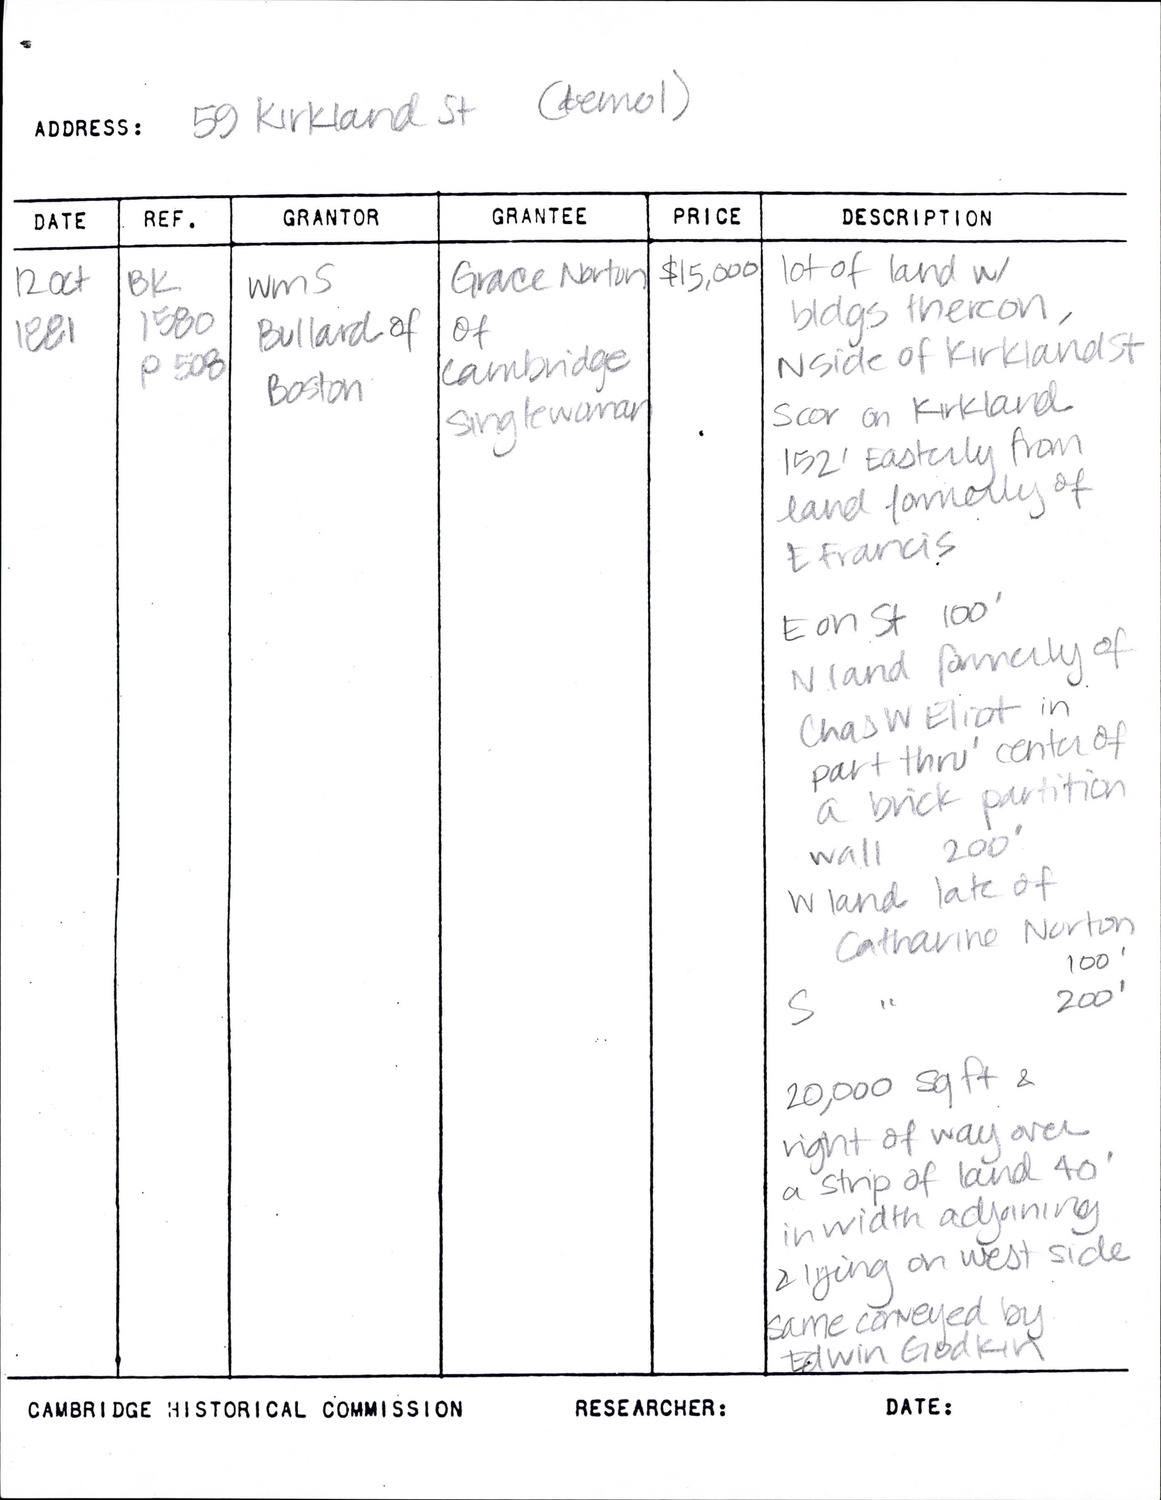 ADDRESS: 59 Kirkland St (demol)
DATE REF. GRANTOR GRANTEE PRICE DESCRIPTION
12 Oct
1881
BK
1580
p 508
Wm S
Bullard of
Boston
Grace Norton
of
Cambridge
singlewoman
$15,000
lot of land w/
bldgs thereon,
N side of Kirkland St
S cor on Kirkland
152' Easterly from
land formerly of
E Francis
E on St 100'
N land formerly of
Chas W Eliot in
part thru' center of
a brick partition
wall 200'
W land late of
Catharine Norton
100'
S " 200'
20,000 sq ft &
right of way over
a strip of land 40'
in width adjoining
& lying on west side
same conveyed by
Edwin Godkin
CAMBRIDGE HISTORICAL COMMISSION RESEARCHER: DATE: